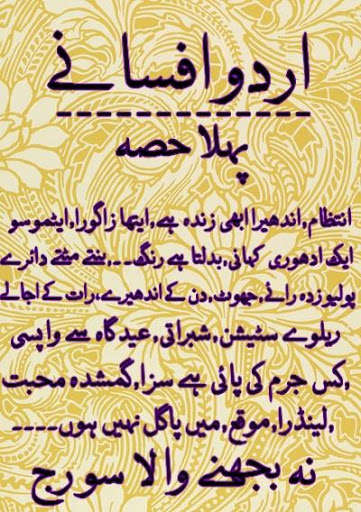 اردو افسانے
پہلا حصہ
انتظام,اندھیرا ابھی زندہ ہے,ایتھا زاگورا,ایٹموسو
ایک ادھوری کہانی,بدلتا ہے رنگ۔۔۔,بنتے مٹتے دائرے
پولیو زدہ رانے,جھوٹ,دن کے اندھیرے,رات کے اجالے
ریلوے سٹیشن,شبراتی,عیدگاہ سے واپسی
,کس جرم کی پائی ہے سزا,گمشدہ محبت
,لینڈرا,موقع,میں پاگل نہیں ہوں۔۔۔۔
نہ بجھنے والا سورج